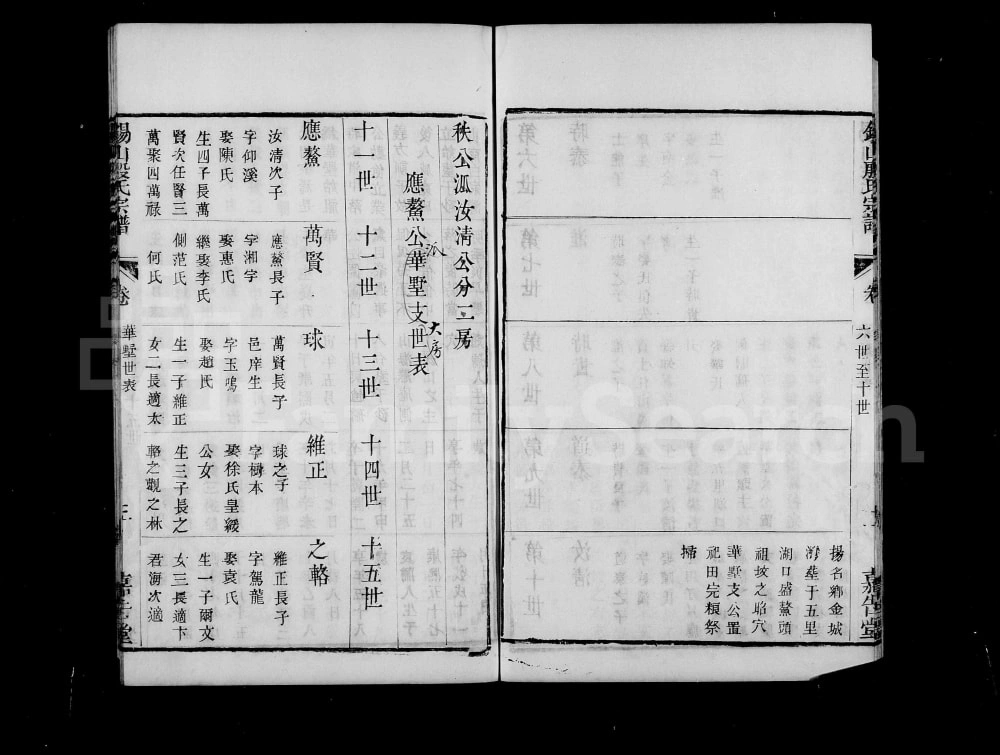 六世至十世
揚名鄉金城
灣塋于五里
湖口盛鰲頭
祖坟之昭穴
華墅支公置
祀田完糧祭
掃
秩公派汝清公分二房
應鰲公派華墅支世表 大房
十一世 十二世 十三世 十四世 十五世
應鰲
汝清次子
字仰溪
娶陳氏
生四子長萬
賢次任賢三
萬聚四萬祿
萬賢
應鰲長子
字湘宇
娶惠氏
繼娶李氏
側范氏
何氏
球
萬賢長子
邑庠生
字玉鳴
娶趙氏
生一子維正
女二長適太
維正
球之子
字樹本
娶徐氏皇緩
公女
生三子長之
輅之觀之林
之輅
維正長子
字駕龍
娶袁氏
生一子爾文
女三長適卞
君海次適
錫山殷氏宗譜
卷
華墅世表